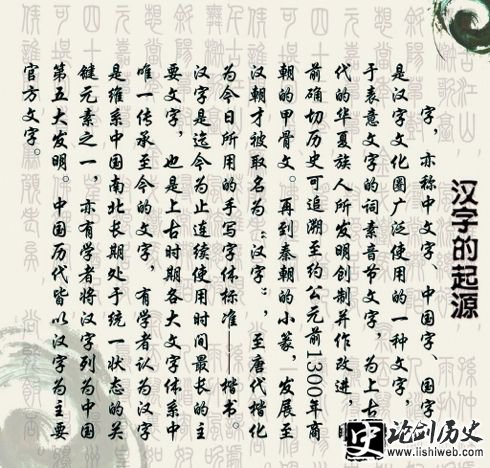 汉字的起源
字，亦称中文字、中国字、国字
是汉字文化圈广泛使用的一种文字，
于表意文字的词素音节文字，为上古
代的华夏族人所发明创制并作改进，目
前确切历史可追溯至约公元前1300年商
朝的甲骨文。再到秦朝的小篆，发展至
汉朝才被取名为：汉字：，至唐代楷化
为今日所用的手写字体标准——楷书。
汉字是迄今为止连续使用时间最长的主
要文字，也是上古时期各大文字体系中
唯一传承至今的文字，有学者认为汉字
是维系中国南北长期处于统一状态的关
键元素之一，亦有学者将汉字列为中国
第五大发明。中国历代皆以汉字为主要
官方文字。
史 论剑历史
www.lishiweb.com